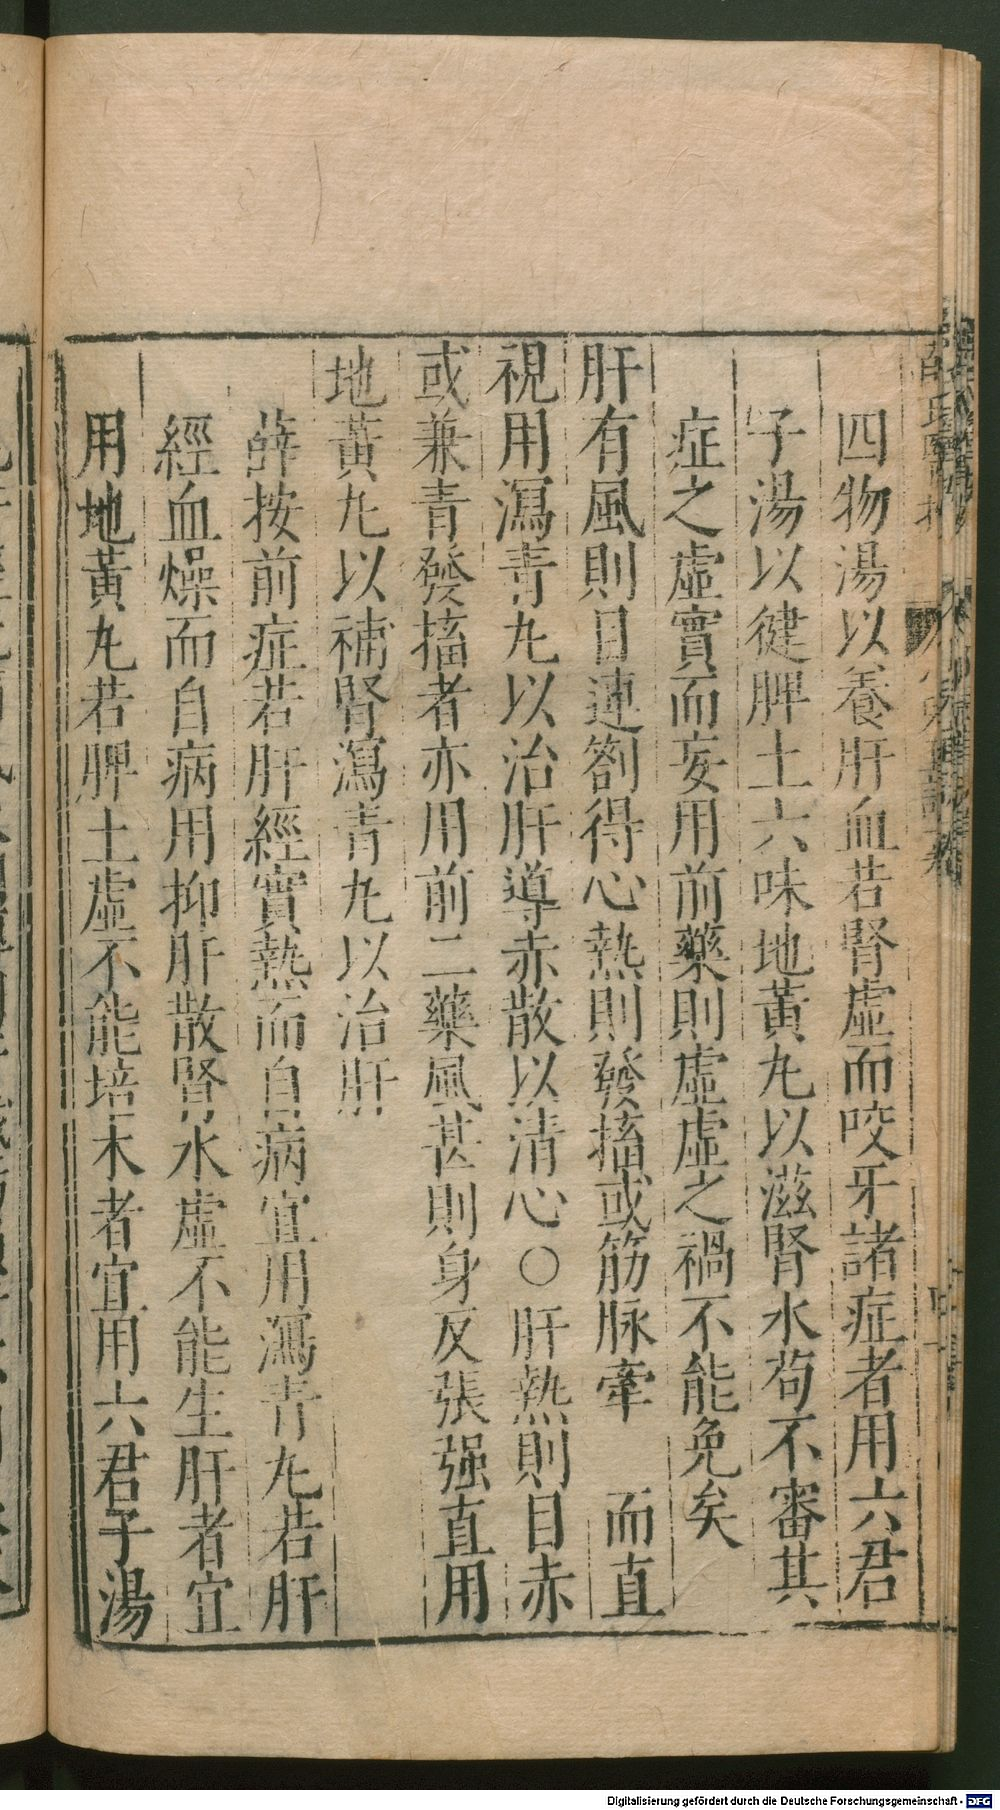 四物湯以養肝血若腎虛而咬牙諸症者用六君
子湯以健脾土六味地黃丸以滋腎水苟不審其
症之虛實而妄用前藥則虛虛之禍不能免矣
肝有風則目連劄得心熱則發搐或筋脉牽 而直
視用瀉青丸以治肝導赤散以清心○肝熱則目赤
或兼青發搐者亦用前二藥風甚則身反張强直用
地黃丸以補腎瀉青丸以治肝
薛按前症若肝經實熱而自病宜用瀉青丸若肝
經血燥而自病用抑肝散腎水虛不能生肝者宜
用地黃丸若脾土虛不能培木者宜用六君子湯
Digitalisierung gefördert durch die Deutsche Forschungsgemeinschaft - DFG